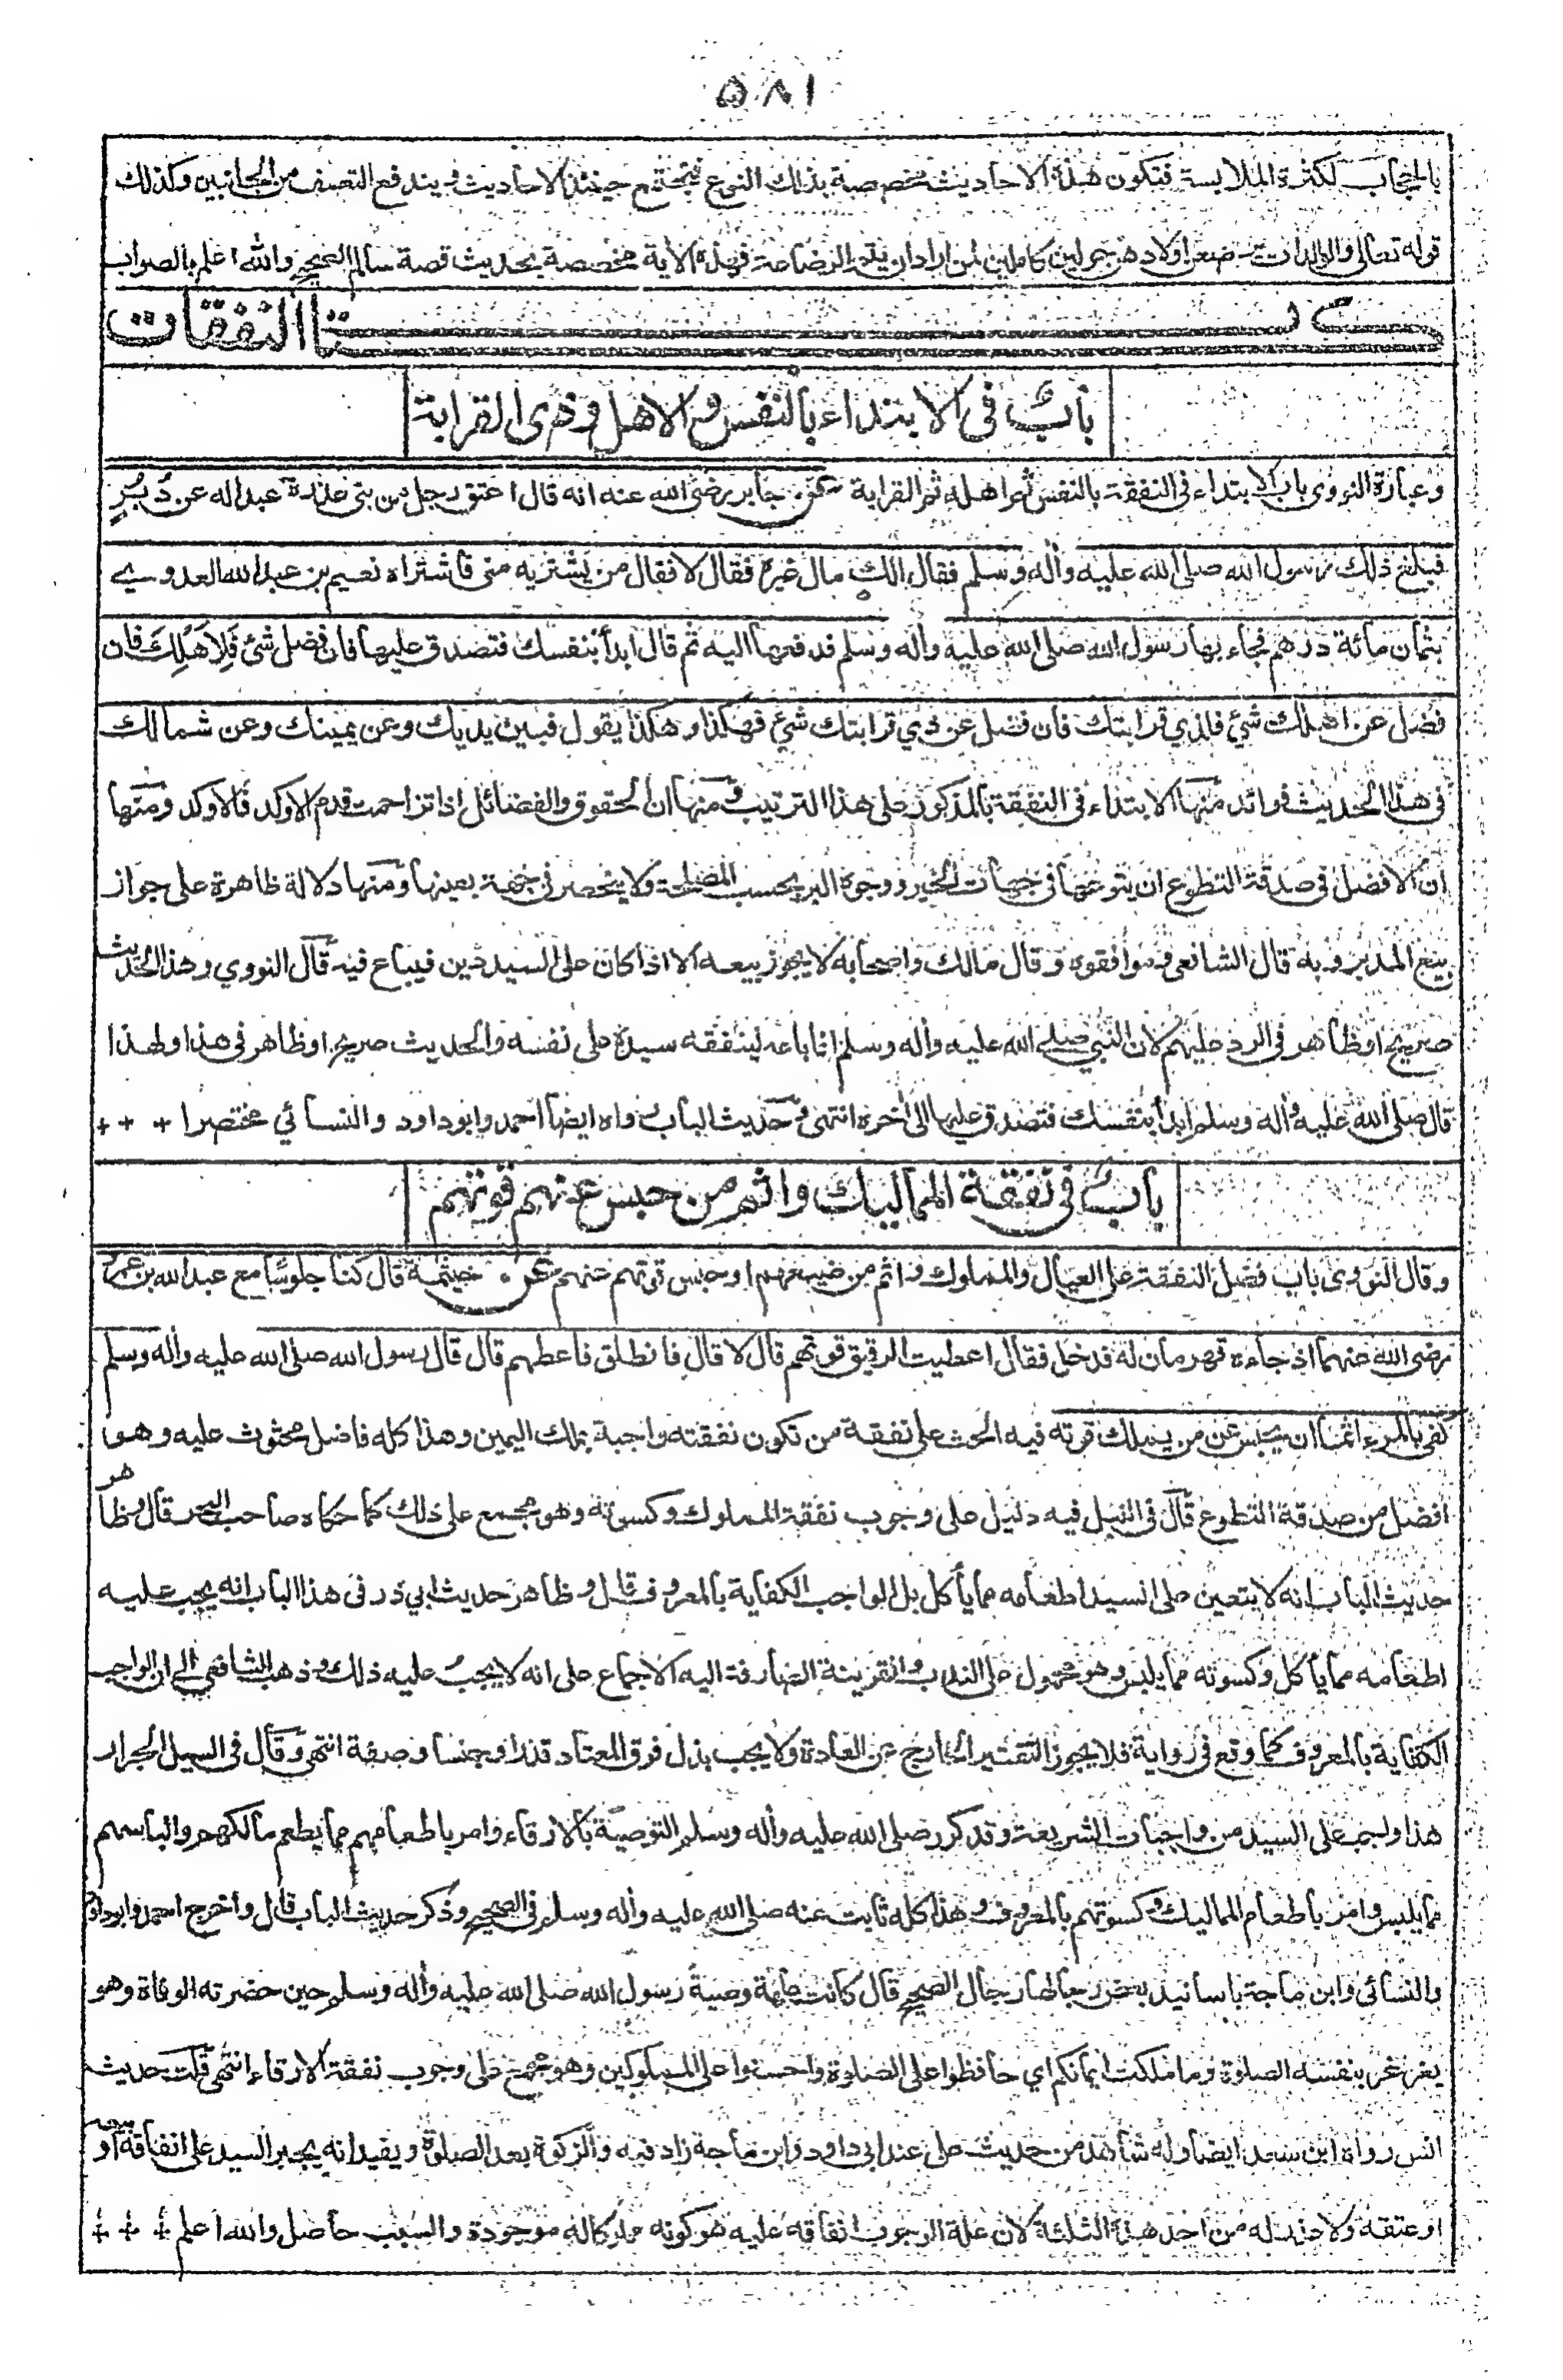 ٥٨١
بالحجاب لكثرة الملابسة فتكون هذه الاحاديث مخصصة بذلك النوع فتجتمع حينئذ الاحاديث ويندفع التعسف من الجانبين وكذلك
قوله تعالى والوالدات يرضعن اولادهن حولين كاملين لمن اراد ان يتم الرضاعة فهذه الاية مخصصة بحديث قصة سالم الصحيح والله اعلم بالصواب
كتاب النفقات
باب في الابتداء بالنفس والاهل وذي القرابة
وعبارة النووي باب الابتداء في النفقة بالنفس ثم اهله ثم القرابة عن جابر رضي الله عنه انه قال اعتق رجل من بني عذرة عبدا له عن دُبُرٍ
فبلغ ذلك رسول الله صلى الله عليه وأله وسلم فقال الك مال غيره فقال لا فقال من يشتريه مني فاشتراه نعيم بن عبد الله العدوسي
بثمان مائة درهم فجاء بها رسول الله صلى الله عليه وأله وسلم فدفعها اليه ثم قال ابدأ بنفسك فتصدق عليها فان فضل شئ فَلِاَهْلِكَ فان
فضل عن اهلك شئ فلذي قرابتك فان فضل عن ذي قرابتك شئ فهكذا وهكذا يقول فبين يديك وعن يمينك وعن شمالك
في هذا الحديث فوائد منها الابتداء في النفقة بالمذكور على هذا الترتيب ومنها ان الحقوق والفضائل اذا تزاحمت قدم الاوكد فالاوكد ومنها
ان الافضل في صدقة التطوع ان ينوعها في جهات الخير ووجوه البر بحسب المصلحة ولا ينحصر في جهة بعينها ومنها دلالة ظاهرة على جواز
بيع المدبر وبه قال الشافعي وموافقوه وقال مالك واصحابه لا يجوز بيعه الا اذا كان على السيد دين فيباع فيه قال النووي وهذا الحديث
صريح او ظاهر في الرد عليهم لان النبي صلى الله عليه وأله وسلم انما باعه لينفقه سيده على نفسه والحديث صريح او ظاهر في هذا ولهذا
قال صلى الله عليه وأله وسلم ابدأ بنفسك فتصدق عليها الى أخره انتهى وحديث الباب رواه ايضا احمد وابو داود والنسائي مختصرا + + +
باب في نفقة المماليك واثم من حبس عنهم قوتهم
وقال النووي باب فضل النفقة على العيال والمملوك واثم من ضيعهم او حبس قوتهم عنهم عن خيثمة قال كنا جلوسًا مع عبد الله بن عمرو
رضي الله عنهما اذ جاءه قهرمان له فدخل فقال اعطيت الرقيق قوتهم قال لا قال فانطلق فاعطهم قال قال رسول الله صلى الله عليه وأله وسلم
كفى بالمرء اثما ان يحبس عن من يملك قوته فيه الحث على نفقة من تكون نفقته واجبة بملك اليمين وهذا كله فاضل محثوث عليه وهو
افضل من صدقة التطوع قال في النيل فيه دليل على وجوب نفقة المملوك وكسوته وهو مجمع على ذلك كما حكاه صاحب البحر قال وظاهر
حديث الباب انه لا يتعين على السيد اطعامه مما يأكل بل الواجب الكفاية بالمعروف قال وظاهر حديث ابي ذر في هذا الباب انه يجب عليه
اطعامه مما يأكل وكسوته مما يلبس وهو محمول على الندب والقرينة الصارفة اليه الاجماع على انه لا يجب عليه ذلك وذهب الشافعي الى ان الواجب
الكفاية بالمعروف كما وقع في رواية فلا يجوز التقتير الخارج عن العادة ولا يجب بذل فوق المعتاد قدرا وجنسا وصفة انتهى وقال في السيل الجرار
هذا واجب على السيد من واجبات الشريعة وقد كرر صلى الله عليه وأله وسلم التوصية بالارقاء وامر باطعامهم مما يطعم مالكهم والباسهم
مما يلبس وامر باطعام المماليك وكسوتهم بالمعروف وهذا كله ثابت عنه صلى الله عليه وأله وسلم في الصحيح وذكر حديث الباب قال واخرج احمد وابو داود
والنسائي وابن ماجة باسانيد بعض رجالها رجال الصحيح قال كانت عامة وصية رسول الله صلى الله عليه وأله وسلم حين حضرته الوفاة وهو
يغرغر بنفسه الصلوة وما ملكت ايمانكم اي حافظوا على الصلوة واحسنوا على المملوكين وهو مجمع على وجوب نفقة الارقاء انتهى قلت حديث
انس رواه ابن سعد ايضا وله شاهد من حديث علي عند ابي داود وابن ماجة زاد فيه والزكوة بعد الصلوة ويفيد انه يجبر السيد على انفاقه او بيعه
او عتقه ولا بد له من احد هذه الثلثة لان علة الوجوب انفاقه عليه هو كونه مملوكا له موجودة والسبب حاصل والله اعلم + + +